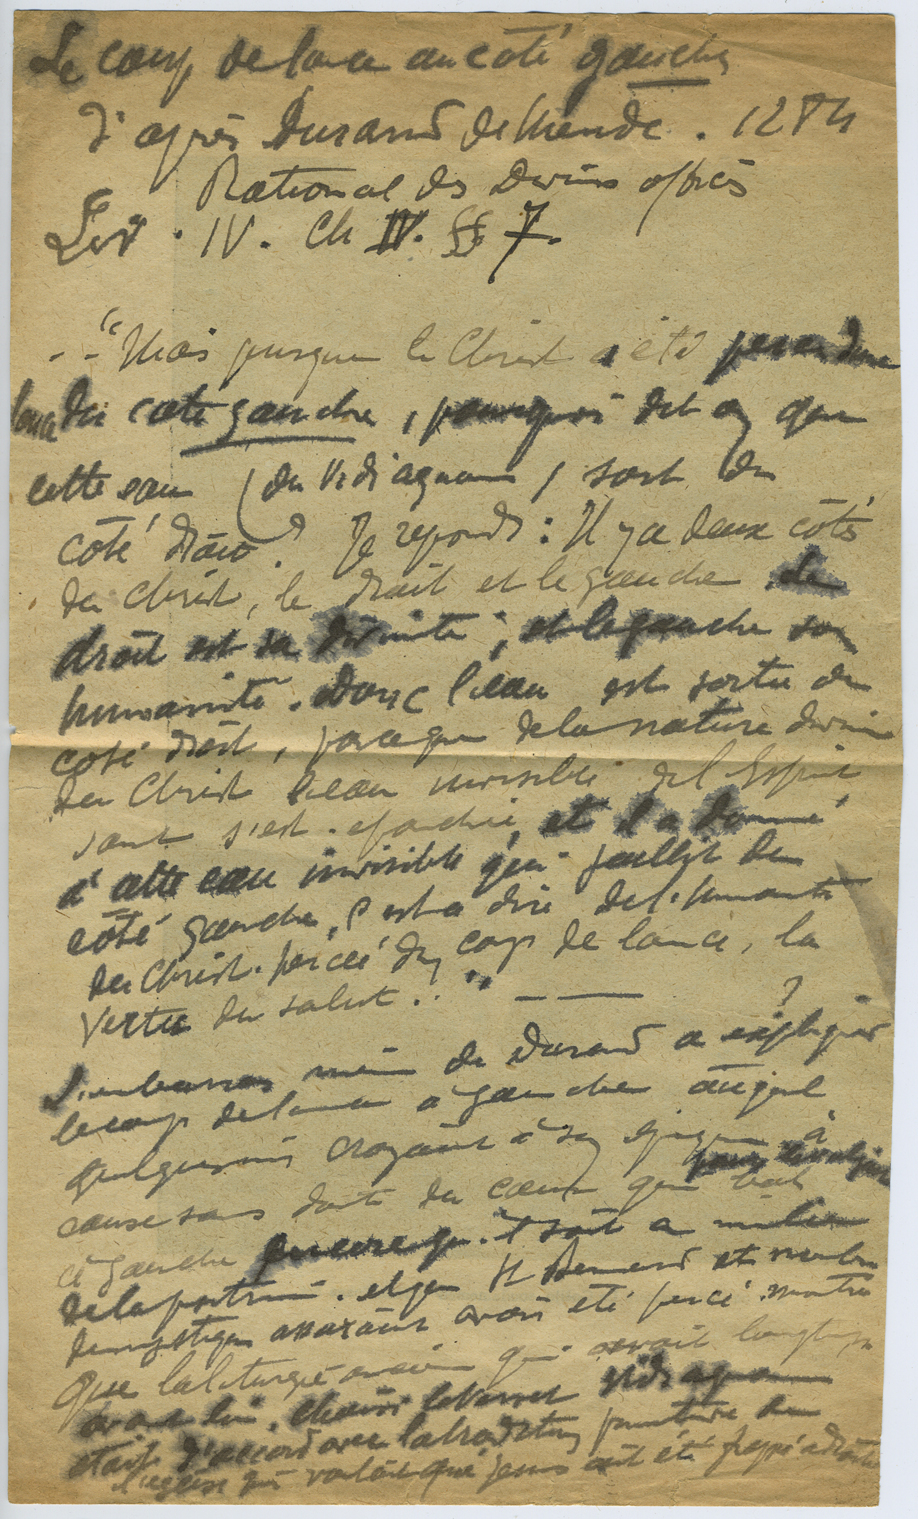 Le coup de lance au côté gauche
d'après Durand de Mende. 1284
Rational des Divins offices
Liv. IV. Ch IV. §§ 7.
-- "Mais puisque le Christ a été percé d'une
lance du côté gauche, pourquoi dit on que
cette eau (du Vidi aquam) sort du
côté droit? Je reponds: Il y a deux côtés
du Christ, le droit et le gauche. Le
droit est sa divinité; et le gauche son
humanité. Donc l'eau est sortie du
coté droit, parceque de la nature divine
du Christ l'eau invisible de l'Esprit
saint s'est epanchée, et il a donné
à cette eau invisible qui jaillit du
côté gauche, c'est a dire de l'humanité
du Christ percée du coup de lance, la
vertu du salut.." — — ?
L'embarras même de Durand a expliquer
le coup de lance à gauche auquel
quelques uns croyaient à son époque à
cause sans doute du coeur qui bat
à gauche encore qu'il soit au milieu
de la poitrine. et que St Bernard et nombre
de mystiques assurant avoir été percé montre
que la liturgie ancienne qui avait longtemps
avant lui choisi le verset Vidi aquam
était d'accord avec la tradition primitive de
l'eglise qui voulait que Jesus ait été frappé à droite